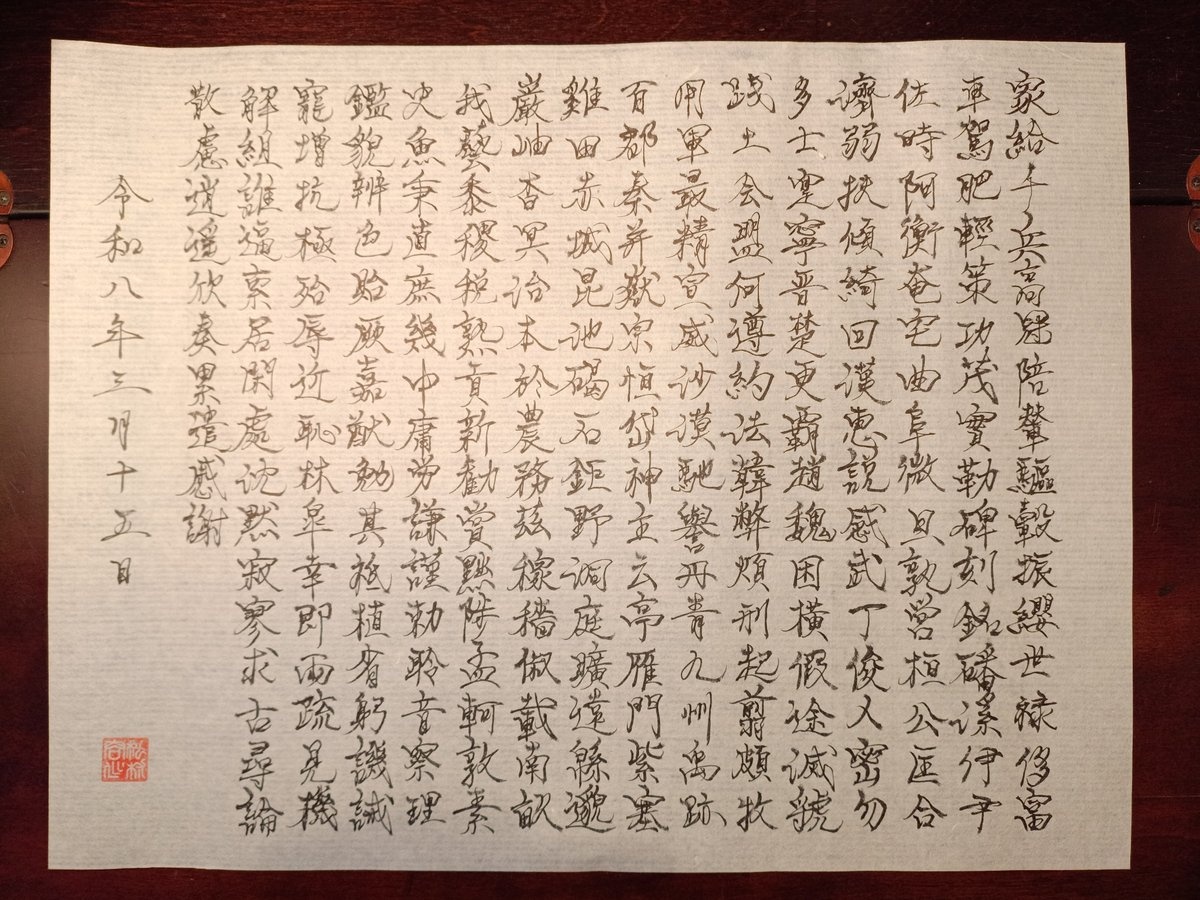 家給千兵高冠陪輦驅轂振纓世禄侈富
車駕肥輕策功茂實勒碑刻銘磻溪伊尹
佐時阿衡奄宅曲阜微旦孰営桓公匡合
濟弱扶傾綺回漢恵説感武丁俊乂密勿
多士寔寧晋楚更覇趙魏困横假途滅虢
踐土会盟何遵約法韓弊煩刑起翦頗牧
用軍最精宣威沙漠馳譽丹青九州禹跡
百郡秦并嶽宗恒岱神主云亭雁門紫塞
雞田赤城昆池碣石鉅野洞庭曠遠緜邈
巌岫杳冥治本於農務茲稼穡俶載南畝
我藝黍稷税熟貢新勧賞黜陟孟軻敦素
史魚秉直庶幾中庸労謙謹勅聆音察理
鑑貌辨色貽厥嘉猷勉其祗植省躬譏誡
寵増抗極殆辱近恥林皐幸即両疏見機
解組誰逼索居閑處沈黙寂寥求古尋論
散慮逍遥欣奏累遣慼謝
令和八年三月十五日